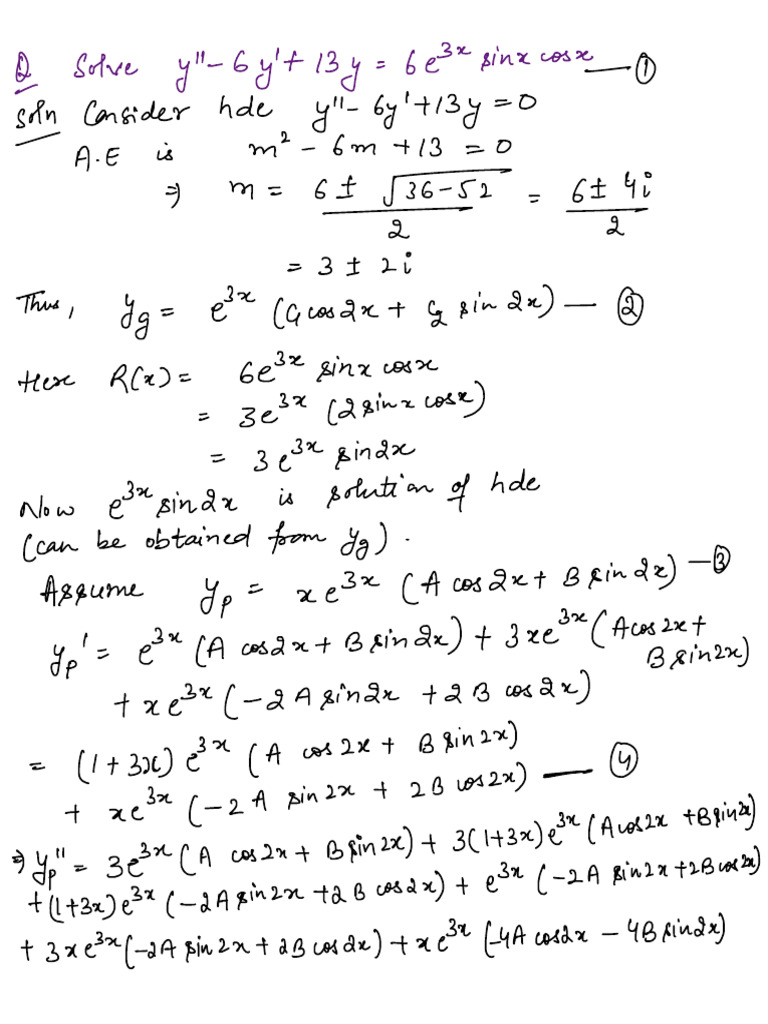 Q Solve y'' - 6y' + 13y = 6e^{3x} sinx cosx — ①
Soln Consider hde y'' - 6y' + 13y = 0
A.E is m² - 6m + 13 = 0
⇒ m = (6 ± √(36-52))/2 = (6 ± 4i)/2
= 3 ± 2i
Thus, y_g = e^{3x} (C₁ cos2x + C₂ sin 2x) — ②
Here R(x) = 6e^{3x} sinx cosx
= 3e^{3x} (2 sinx cosx)
= 3e^{3x} sin2x
Now e^{3x} sin2x is solution of hde
(can be obtained from y_g).
Assume y_p = xe^{3x} (A cos2x + B sin 2x) — ③
y_p' = e^{3x} (A cos2x + B sin2x) + 3xe^{3x} (A cos 2x +
B sin2x)
+ xe^{3x} (-2A sin2x + 2B cos2x)
= (1+3x) e^{3x} (A cos2x + B sin2x)
+ xe^{3x} (-2A sin 2x + 2B cos2x) — ④
⇒ y_p'' = 3e^{3x} (A cos2x + B sin2x) + 3(1+3x)e^{3x} (A cos2x + B sin2x)
+ (1+3x)e^{3x} (-2A sin2x + 2B cos2x) + e^{3x} (-2A sin2x + 2B cos2x)
+ 3xe^{3x} (-2A sin2x + 2B cos2x) + xe^{3x} (-4A cos2x - 4B sin2x)